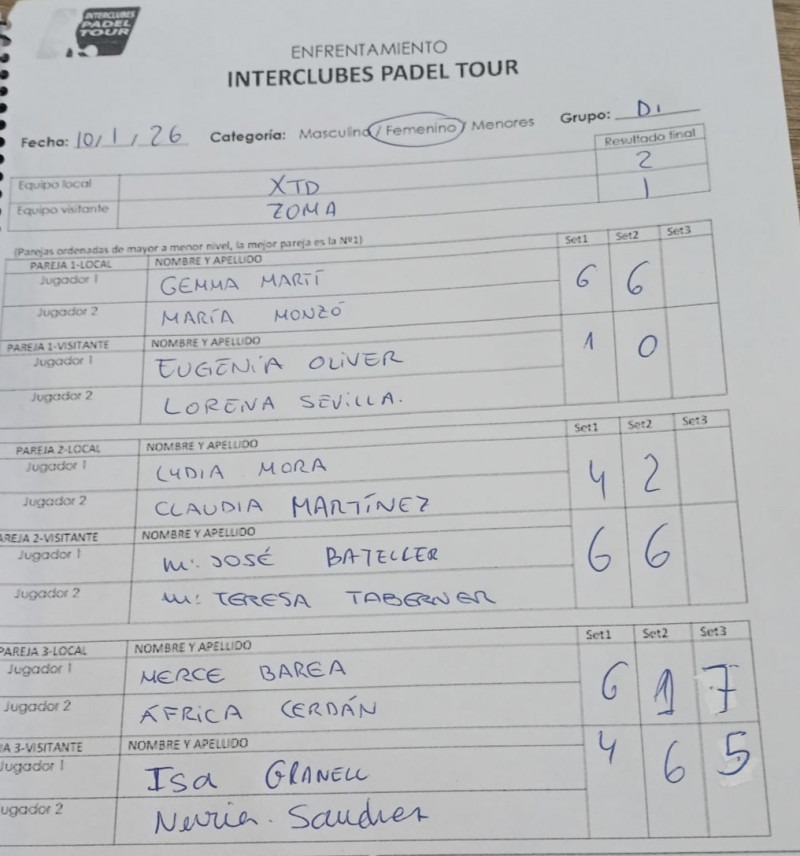 INTERCLUBES
PADEL
TOUR
ENFRENTAMIENTO
INTERCLUBES PADEL TOUR
Fecha: 10/1/26 Categoría: Masculino / Femenino / Menores Grupo: D1
Resultado final
Equipo local XTD 2
Equipo visitante ZOMA 1
(Parejas ordenadas de mayor a menor nivel, la mejor pareja es la Nº1) Set1 Set2 Set3
PAREJA 1-LOCAL NOMBRE Y APELLIDO
Jugador 1 GEMMA MARTÍ 6 6
Jugador 2 MARÍA MONZÓ
PAREJA 1-VISITANTE NOMBRE Y APELLIDO
Jugador 1 EUGENIA OLIVER 1 0
Jugador 2 LORENA SEVILLA.
Set1 Set2 Set3
PAREJA 2-LOCAL NOMBRE Y APELLIDO
Jugador 1 LYDIA MORA 4 2
Jugador 2 CLAUDIA MARTÍNEZ
AREJA 2-VISITANTE NOMBRE Y APELLIDO
Jugador 1 Mª JOSÉ BATELLER 6 6
Jugador 2 Mª TERESA TABERNER
Set1 Set2 Set3
PAREJA 3-LOCAL NOMBRE Y APELLIDO
Jugador 1 MERCE BAREA 6 1 7
Jugador 2 ÁFRICA CERDÁN
A 3-VISITANTE NOMBRE Y APELLIDO 4 6 5
Jugador 1 Isa GRANELL
ugador 2 Nuria. Sanchez